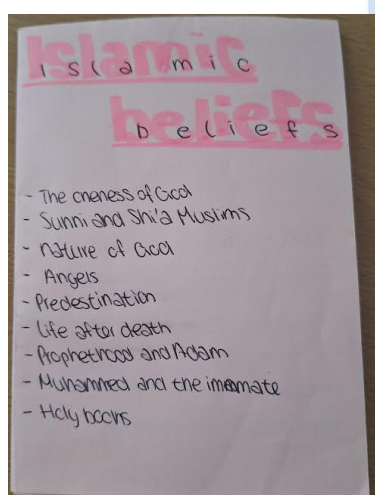 Islamic
islamic
beliefs
beliefs
- The oneness of God
- Sunni and Shi'a Muslims
- nature of God
- Angels
- Predestination
- life after death
- Prophethood and Adam
- Muhammed and the imamate
- Holy books